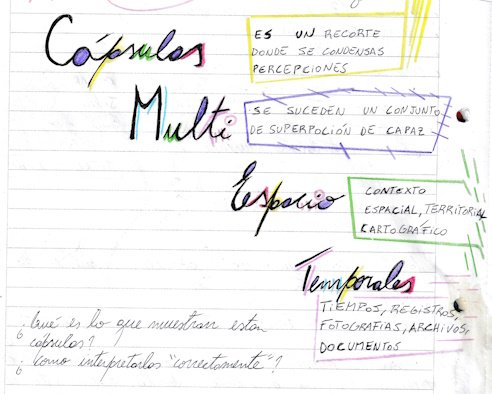 Cápsulas
ES UN RECORTE
DONDE SE CONDENSAS
PERCEPCIONES
Multi
SE SUCEDEN UN CONJUNTO
DE SUPERPOCIÓN DE CAPAZ
Espacio
CONTEXTO
ESPACIAL, TERRITORIAL
CARTOGRÁFICO
Temporales
TIEMPOS, REGISTROS,
FOTOGRAFIAS, ARCHIVOS,
DOCUMENTOS
¿Qué es lo que muestran estas
cápsulas?
¿Como interpretarlas "correctamente"?